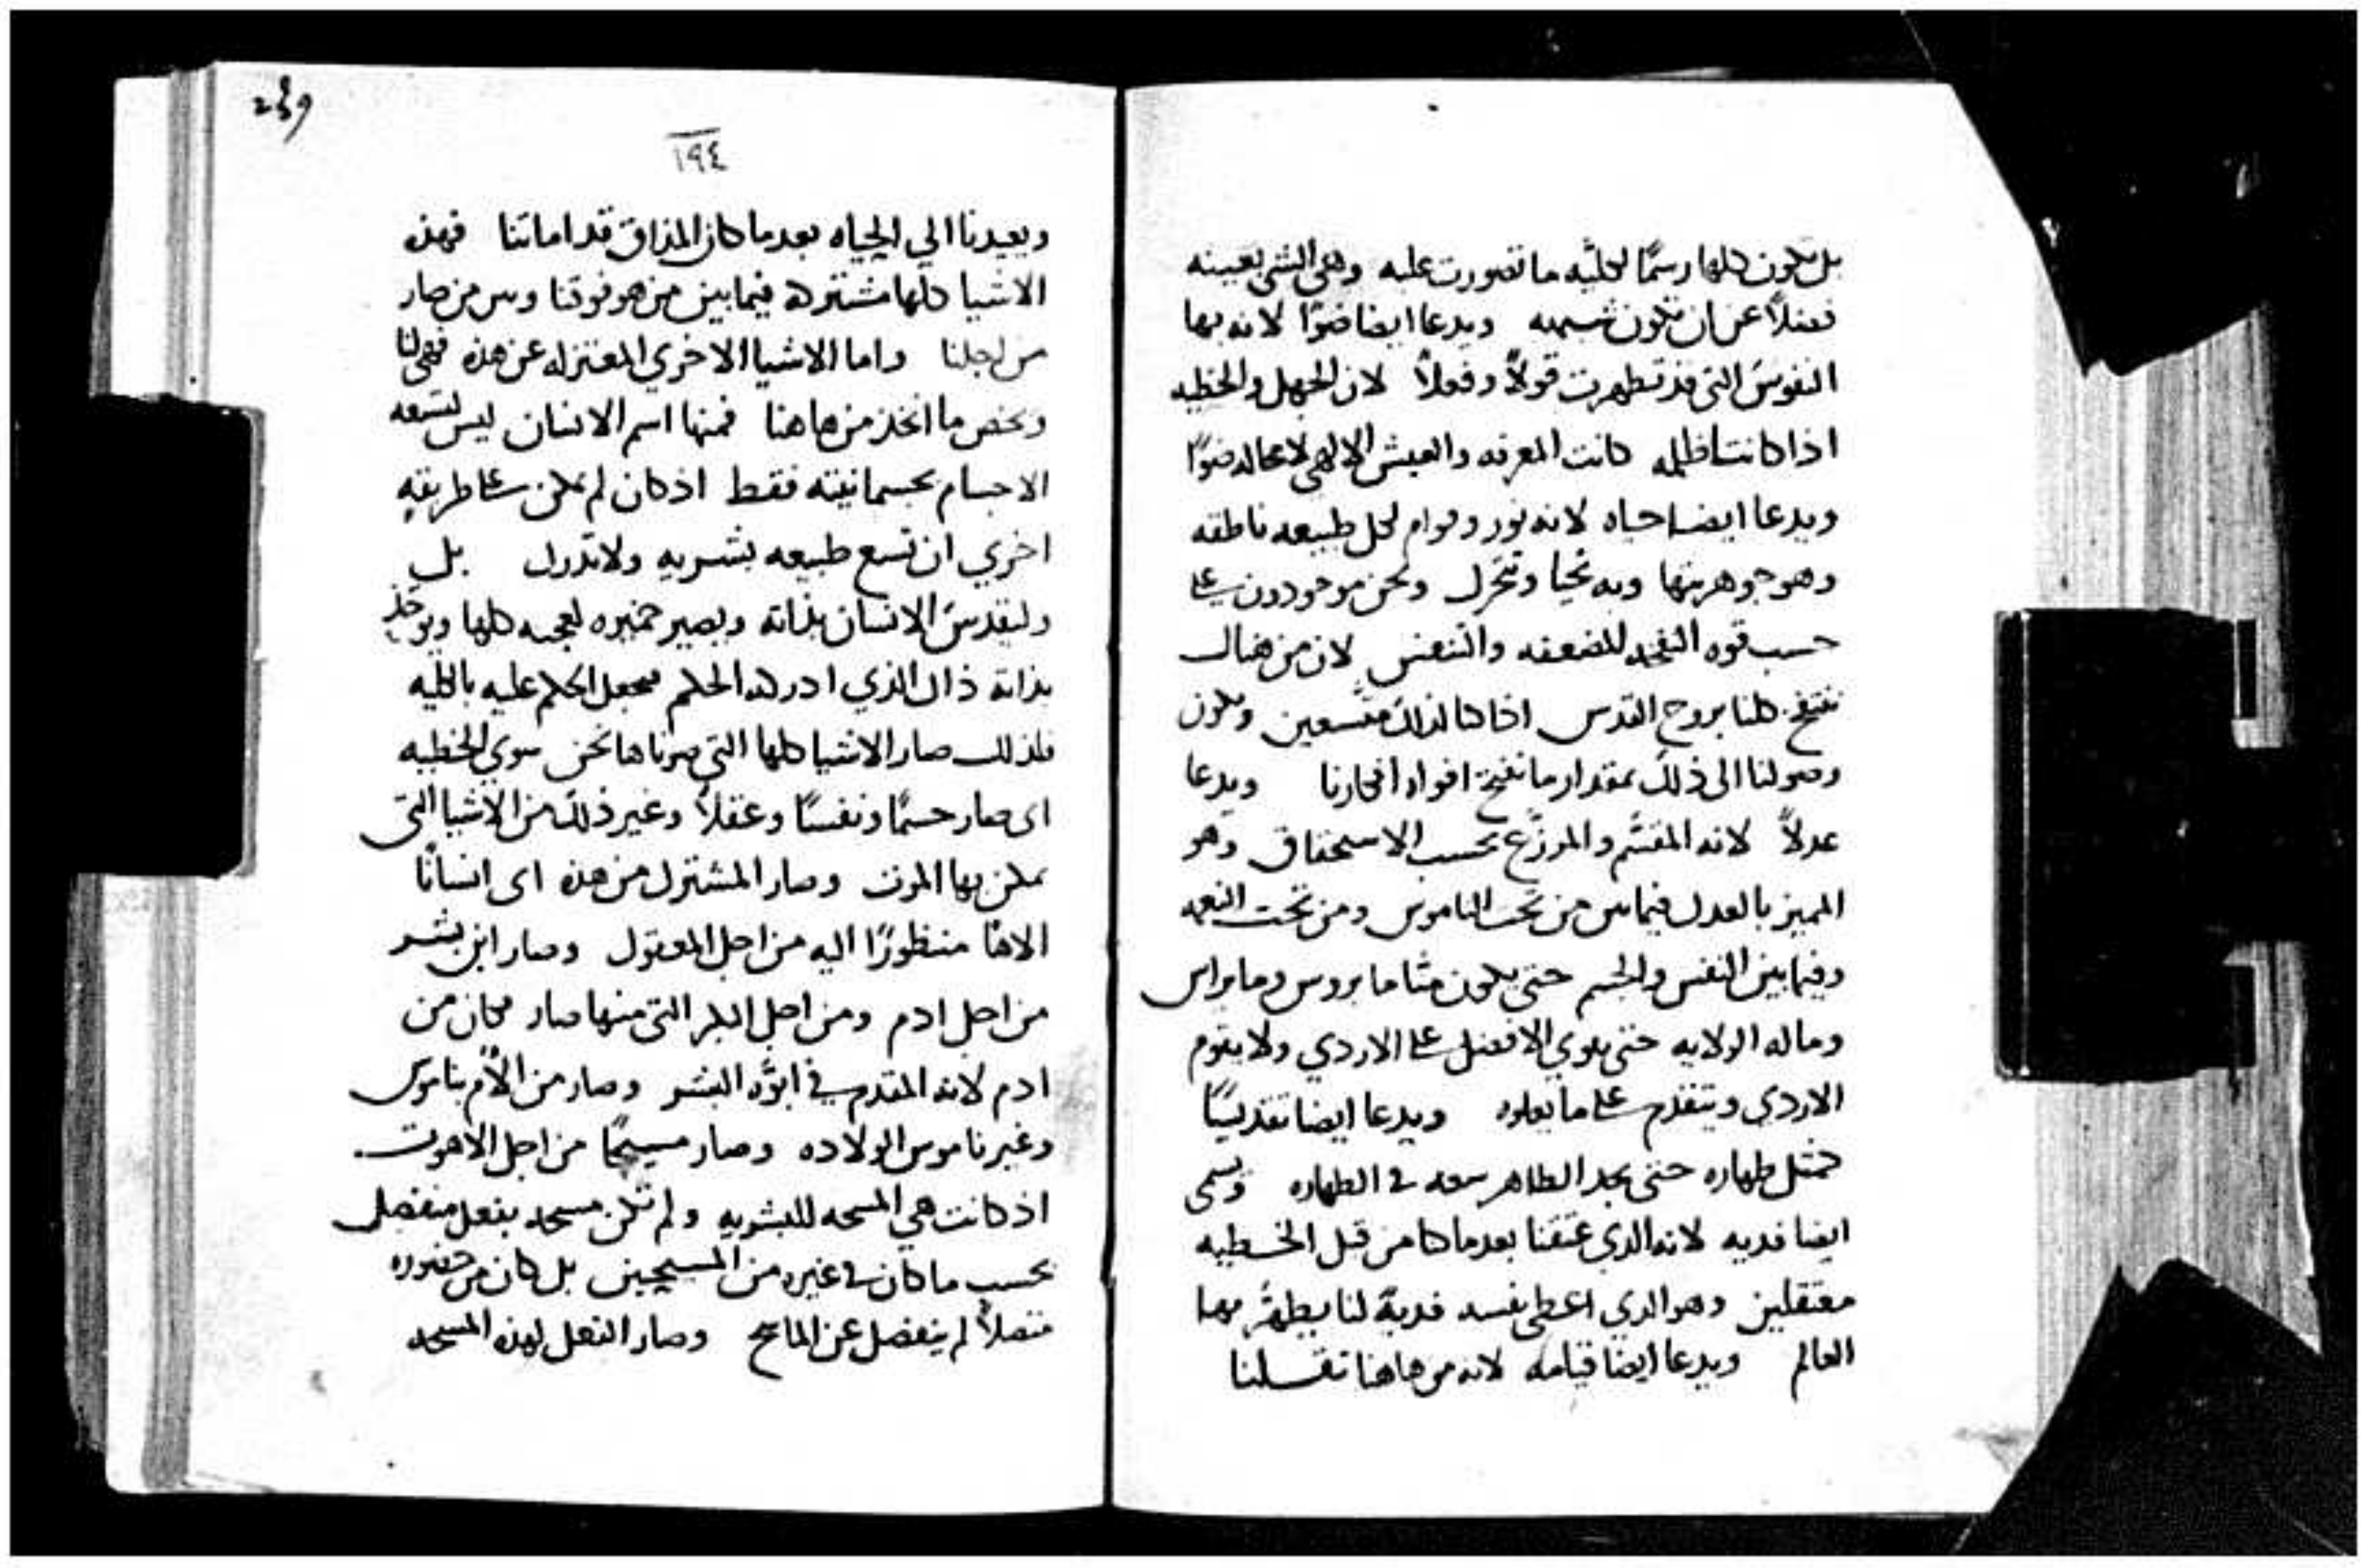 بل تكون كلها رسمًا لكليّه ما تصورت عليه وهي الشي بعينه
فضلاً عن ان تكون شبيهه ويدعا ايضا ضوًا لانه بها
النفوس التي قد تطهرت قولاً وفعلاً لان الجهل والخطيه
اذا كانتا ظلمه كانت المعرفه والعيش الالهي لا محاله ضوًا
ويدعا ايضا حياه لانه نور وقوام لكل طبيعه ناطقه
وهو جوهر بنها وبه نحيا ونتحرك ونحن موجودون على
حسب قوه النفخه المضعفه والتنفس لان من هناك
ننتفخ كلنا بروح القدس اذا كنا لذلك متسعين ويكون
وصولنا الى ذلك بمقدار ما نفتح افواه افكارنا ويدعا
عدلاً لانه المقسّم والموزّع بحسب الاستحقاق وهو
المميز بالعدل فيما بين من تحت الناموس ومن تحت النعمه
وفيما بين النفس والجسم حتى يكون منّا ما يروس وما يراس
وما له الولايه حتى يقوي الافضل على الاردي ولا يقوم
الاردي ويتقدم على ما يعلوه ويدعا ايضا تقديسًا
كمثل طهاره حتى يجد الطاهر سعه في الطهاره ويسمى
ايضا فديه لانه الذي عتقنا بعدما كنا من قبل الخطيه
معتقلين وهو الذي اعطى نفسه فدية لنا يطهّر بها
العالم ويدعا ايضا قيامه لانه من هاهنا تقبلنا
239
١٩٤
ويعيدنا الي الحياه بعدما كان المذاق قد اماتنا فهذه
الاشيا كلها مشتركه فيما بين من هو فوقنا وبين من صار
من اجلنا واما الاشيا الاخري المعتزله عن هذه فهي لنا
وتخص ما اتخذ من هاهنا فمنها اسم الانسان ليس لتسعه
الاجسام بجسمانيته فقط اذ كان لم يمكن على طريقه
اخري ان تسع طبيعه بشريه ولا تدرك بل
وليقدس الانسان بذاته ويصير خميره لعجنه كلها ويوخذ
بذاته ذاك الذي ادركه الحكم فيجعل الحكم عليه بالكليه
فلذلك صار الاشيا كلها التي صرناها نحن سوي الخطيه
اى صار جسمًا ونفسًا وعقلاً وغير ذلك من الاشيا التى
يمكن بها الموت وصار المشترك من هذه اى انسانًا
الاهًا منظورًا اليه من اجل المعقول وصار ابن بشر
من اجل ادم ومن اجل البكر التى منها صار فكان من
ادم لانه المتقدم في ابوّه البشر وصار من الأم بناموس
وغير ناموس الولاده وصار مسيحًا من اجل الاهوت.
اذ كانت هي المسحه للبشريه ولم تكن مسحه بفعل منفصل
بحسب ما كان في غيره من المسيحيين بل كان من حضوره
متصلاً لم ينفصل عن الماسح وصار الفعل لهذه المسحه